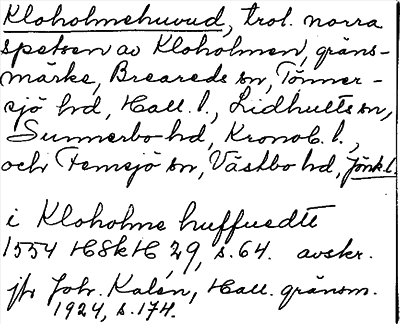 Kloholmehuvud, trol. norra
spetsen av Kloholmen, gräns-
märke, Breareds sn, Tönner-
sjö hd, Hall. l., Lidhults sn,
Sunnerbo hd, Kronob. l.,
och Femsjö sn, Västbo hd, Jönk. l.
i Kloholme huffuedtt
1554 HSkH 29, s. 64. avskr.
jfr Joh. Kalén, Hall. gränsm.
1924, s. 174.